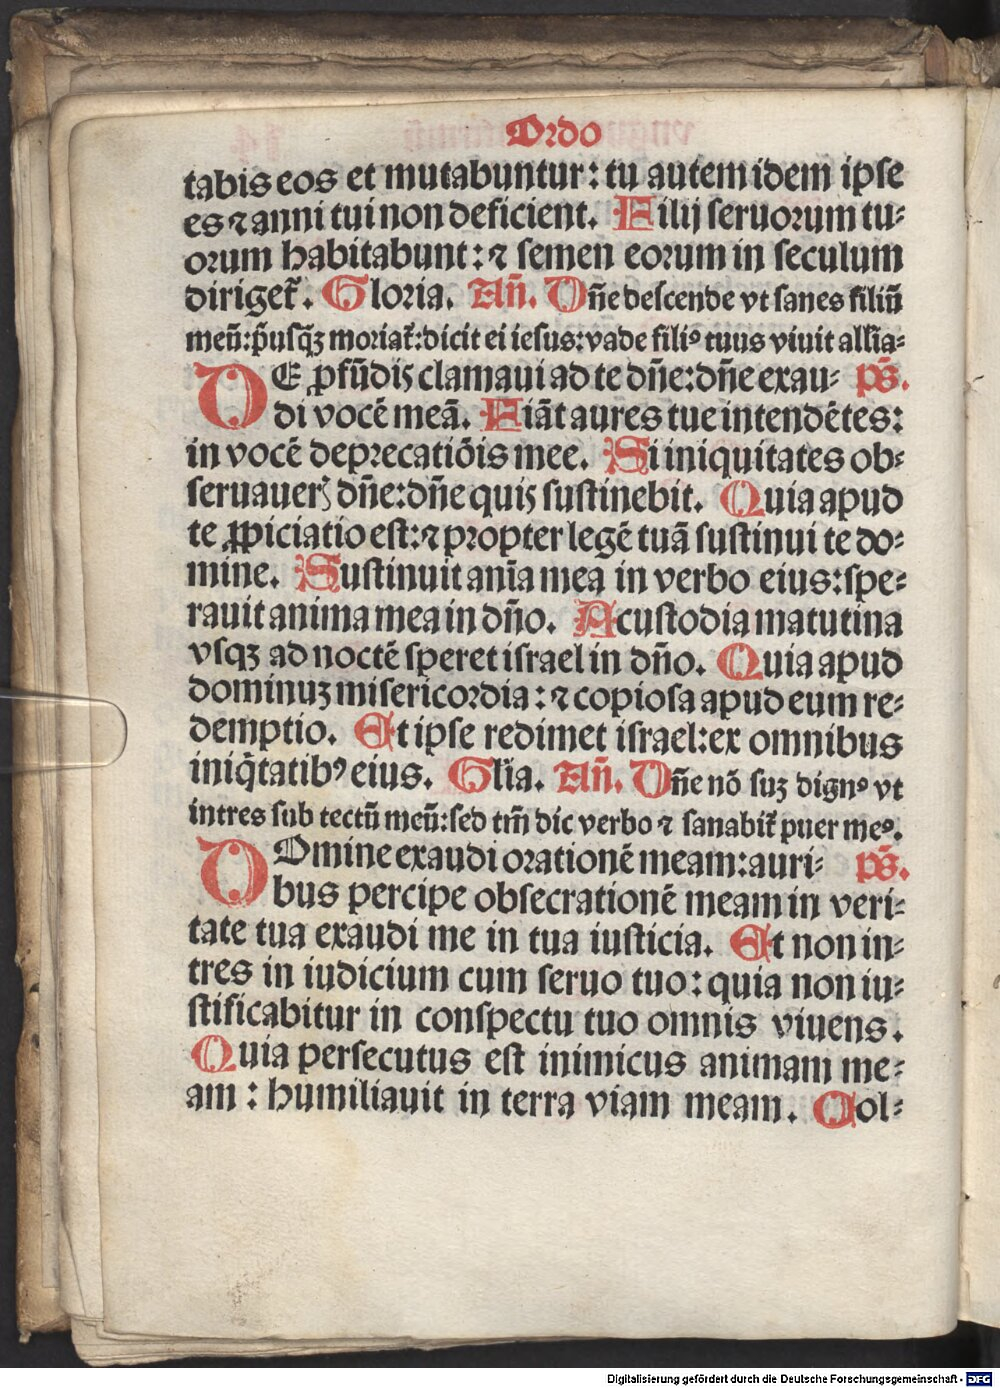 Ordo
tabis eos et mutabuntur: tu autem idem ipse
es ⁊ anni tui non deficient. Filij seruorum tu⸗
orum habitabunt: ⁊ semen eorum in seculum
diriget᷑. Gloria. Añ. Dñe descende vt sanes filiū
meū: p̄usq̄ꝫ moriat᷑: dicit ei iesus: vade fili⁹ tuus viuit all̄ia⸗
DE ꝓfūdis clamaui ad te dñe: dñe exau⸗ p̄s.
di vocē meā. Fiāt aures tue intendētes:
in vocē deprecatiōis mee. Si iniquitates ob⸗
seruauerꝭ dñe: dñe quis sustinebit. Quia apud
te ꝓpiciatio est: ⁊ propter legē tuā sustinui te do⸗
mine. Sustinuit anīa mea in verbo eius: spe⸗
rauit anima mea in dño. A custodia matutina
vsqꝫ ad noctē speret israel in dño. Quia apud
dominuꝫ misericordia: ⁊ copiosa apud eum re⸗
demptio. Et ipse redimet israel: ex omnibus
iniq̄tatib⁹ eius. Gl̄ia. Añ. Dñe nō suꝫ dign⁹ vt
intres sub tectū meū: sed tm̄ dic verbo ⁊ sanabit᷑ puer me⁹.
DOmine exaudi orationē meam: auri⸗ p̄s.
bus percipe obsecrationē meam in veri⸗
tate tua exaudi me in tua iusticia. Et non in⸗
tres in iudicium cum seruo tuo: quia non iu⸗
stificabitur in conspectu tuo omnis viuens.
Quia persecutus est inimicus animam me⸗
am: humiliauit in terra viam meam. Col⸗
Digitalisierung gefördert durch die Deutsche Forschungsgemeinschaft - DFG